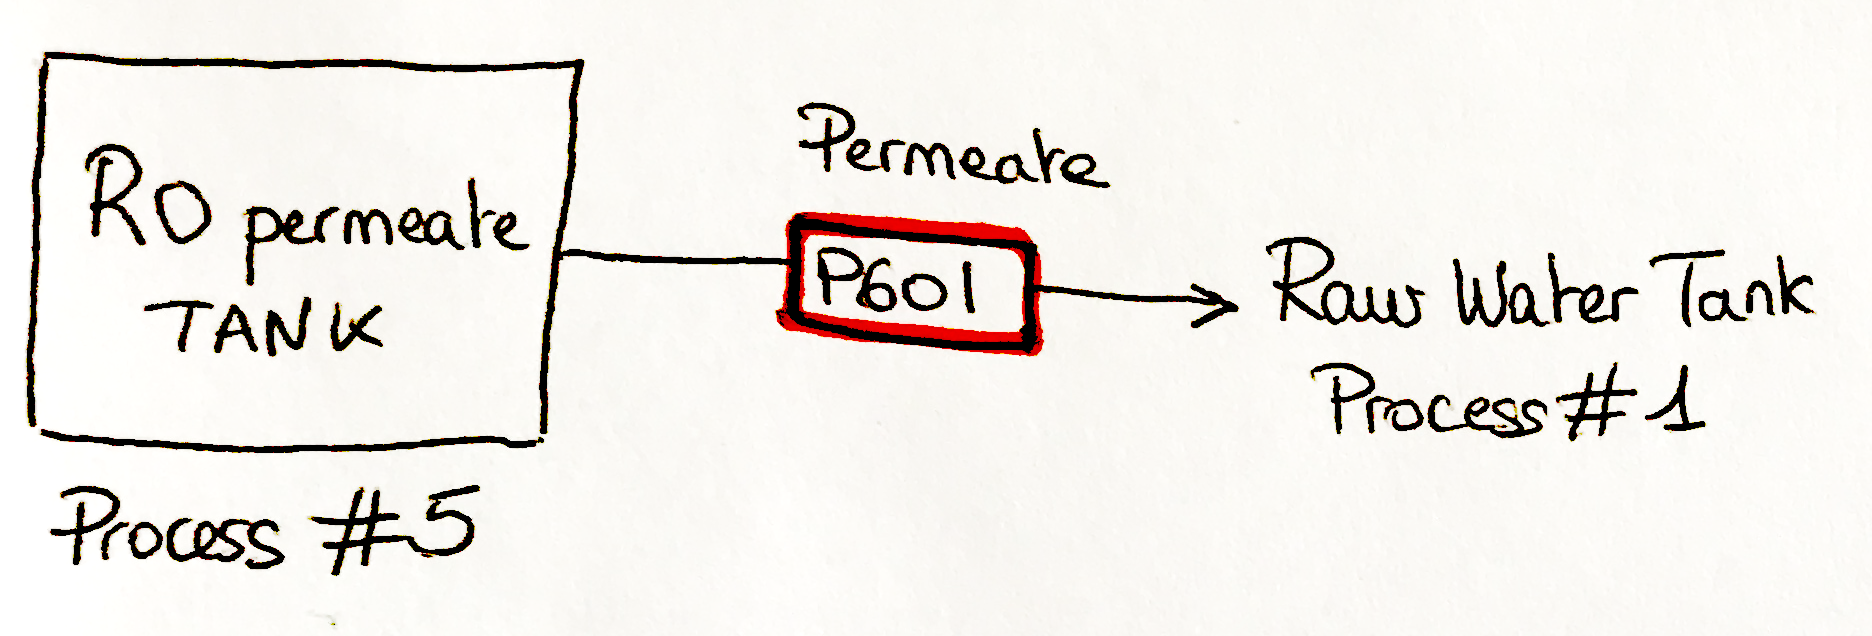 RO permeate
TANK
Process #5
Permeate
P601
Raw Water Tank
Process #1